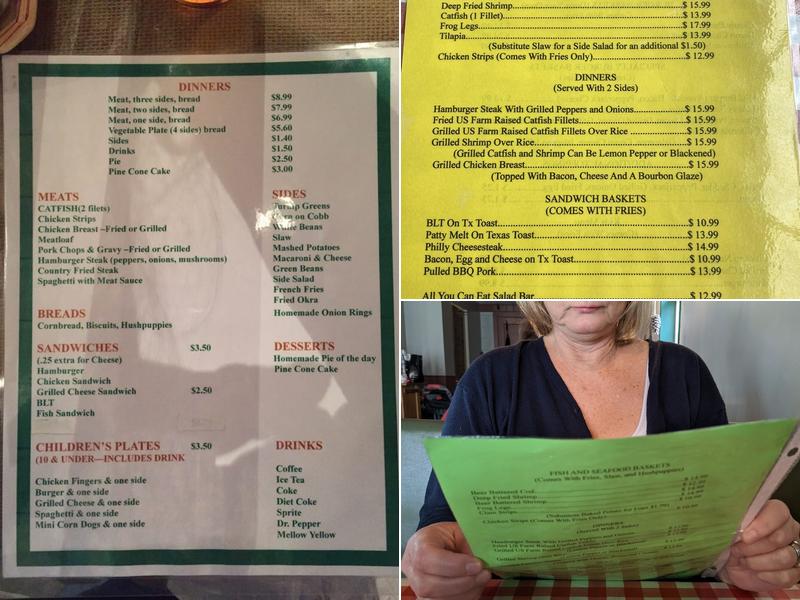 DINNERS
Meat, three sides, bread $8.99
Meat, two sides, bread $7.99
Meat, one side, bread $6.99
Vegetable Plate (4 sides) bread $5.60
Sides $1.40
Drinks $1.50
Pie $2.50
Pine Cone Cake $3.00
MEATS
CATFISH(2 filets)
Chicken Strips
Chicken Breast –Fried or Grilled
Meatloaf
Pork Chops & Gravy –Fried or Grilled
Hamburger Steak (peppers, onions, mushrooms)
Country Fried Steak
Spaghetti with Meat Sauce
SIDES
Turnip Greens
Corn on Cobb
White Beans
Slaw
Mashed Potatoes
Macaroni & Cheese
Green Beans
Side Salad
French Fries
Fried Okra
Homemade Onion Rings
BREADS
Cornbread, Biscuits, Hushpuppies
SANDWICHES $3.50
(.25 extra for Cheese)
Hamburger
Chicken Sandwich
Grilled Cheese Sandwich $2.50
BLT
Fish Sandwich
DESSERTS
Homemade Pie of the day
Pine Cone Cake
CHILDREN'S PLATES $3.50
(10 & UNDER—INCLUDES DRINK
Chicken Fingers & one side
Burger & one side
Grilled Cheese & one side
Spaghetti & one side
Mini Corn Dogs & one side
DRINKS
Coffee
Ice Tea
Coke
Diet Coke
Sprite
Dr. Pepper
Mellow Yellow
Deep Fried Shrimp $ 15.99
Catfish (1 Fillet) $ 13.99
Frog Legs $ 17.99
Tilapia $ 13.99
(Substitute Slaw for a Side Salad for an additional $1.50)
Chicken Strips (Comes With Fries Only) $ 12.99
DINNERS
(Served With 2 Sides)
Hamburger Steak With Grilled Peppers and Onions $ 15.99
Fried US Farm Raised Catfish Fillets $ 15.99
Grilled US Farm Raised Catfish Fillets Over Rice $ 15.99
Grilled Shrimp Over Rice $ 15.99
(Grilled Catfish and Shrimp Can Be Lemon Pepper or Blackened)
Grilled Chicken Breast $ 15.99
(Topped With Bacon, Cheese And A Bourbon Glaze)
SANDWICH BASKETS
(COMES WITH FRIES)
BLT On Tx Toast $ 10.99
Patty Melt On Texas Toast $ 13.99
Philly Cheesesteak $ 14.99
Bacon, Egg and Cheese on Tx Toast $ 10.99
Pulled BBQ Pork $ 13.99
All You Can Eat Salad Bar $ 12.99
FISH AND SEAFOOD BASKETS
(Comes With Fries, Slaw, and Hushpuppies)
Beer Battered Cod
Deep Fried Shrimp
Beer Battered Shrimp
Frog Legs
Clam Strips
Chicken Strips (Comes With Fries Only)
DINNERS
(Served With 2 Sides)
Hamburger Steak With Grilled Peppers and Onions